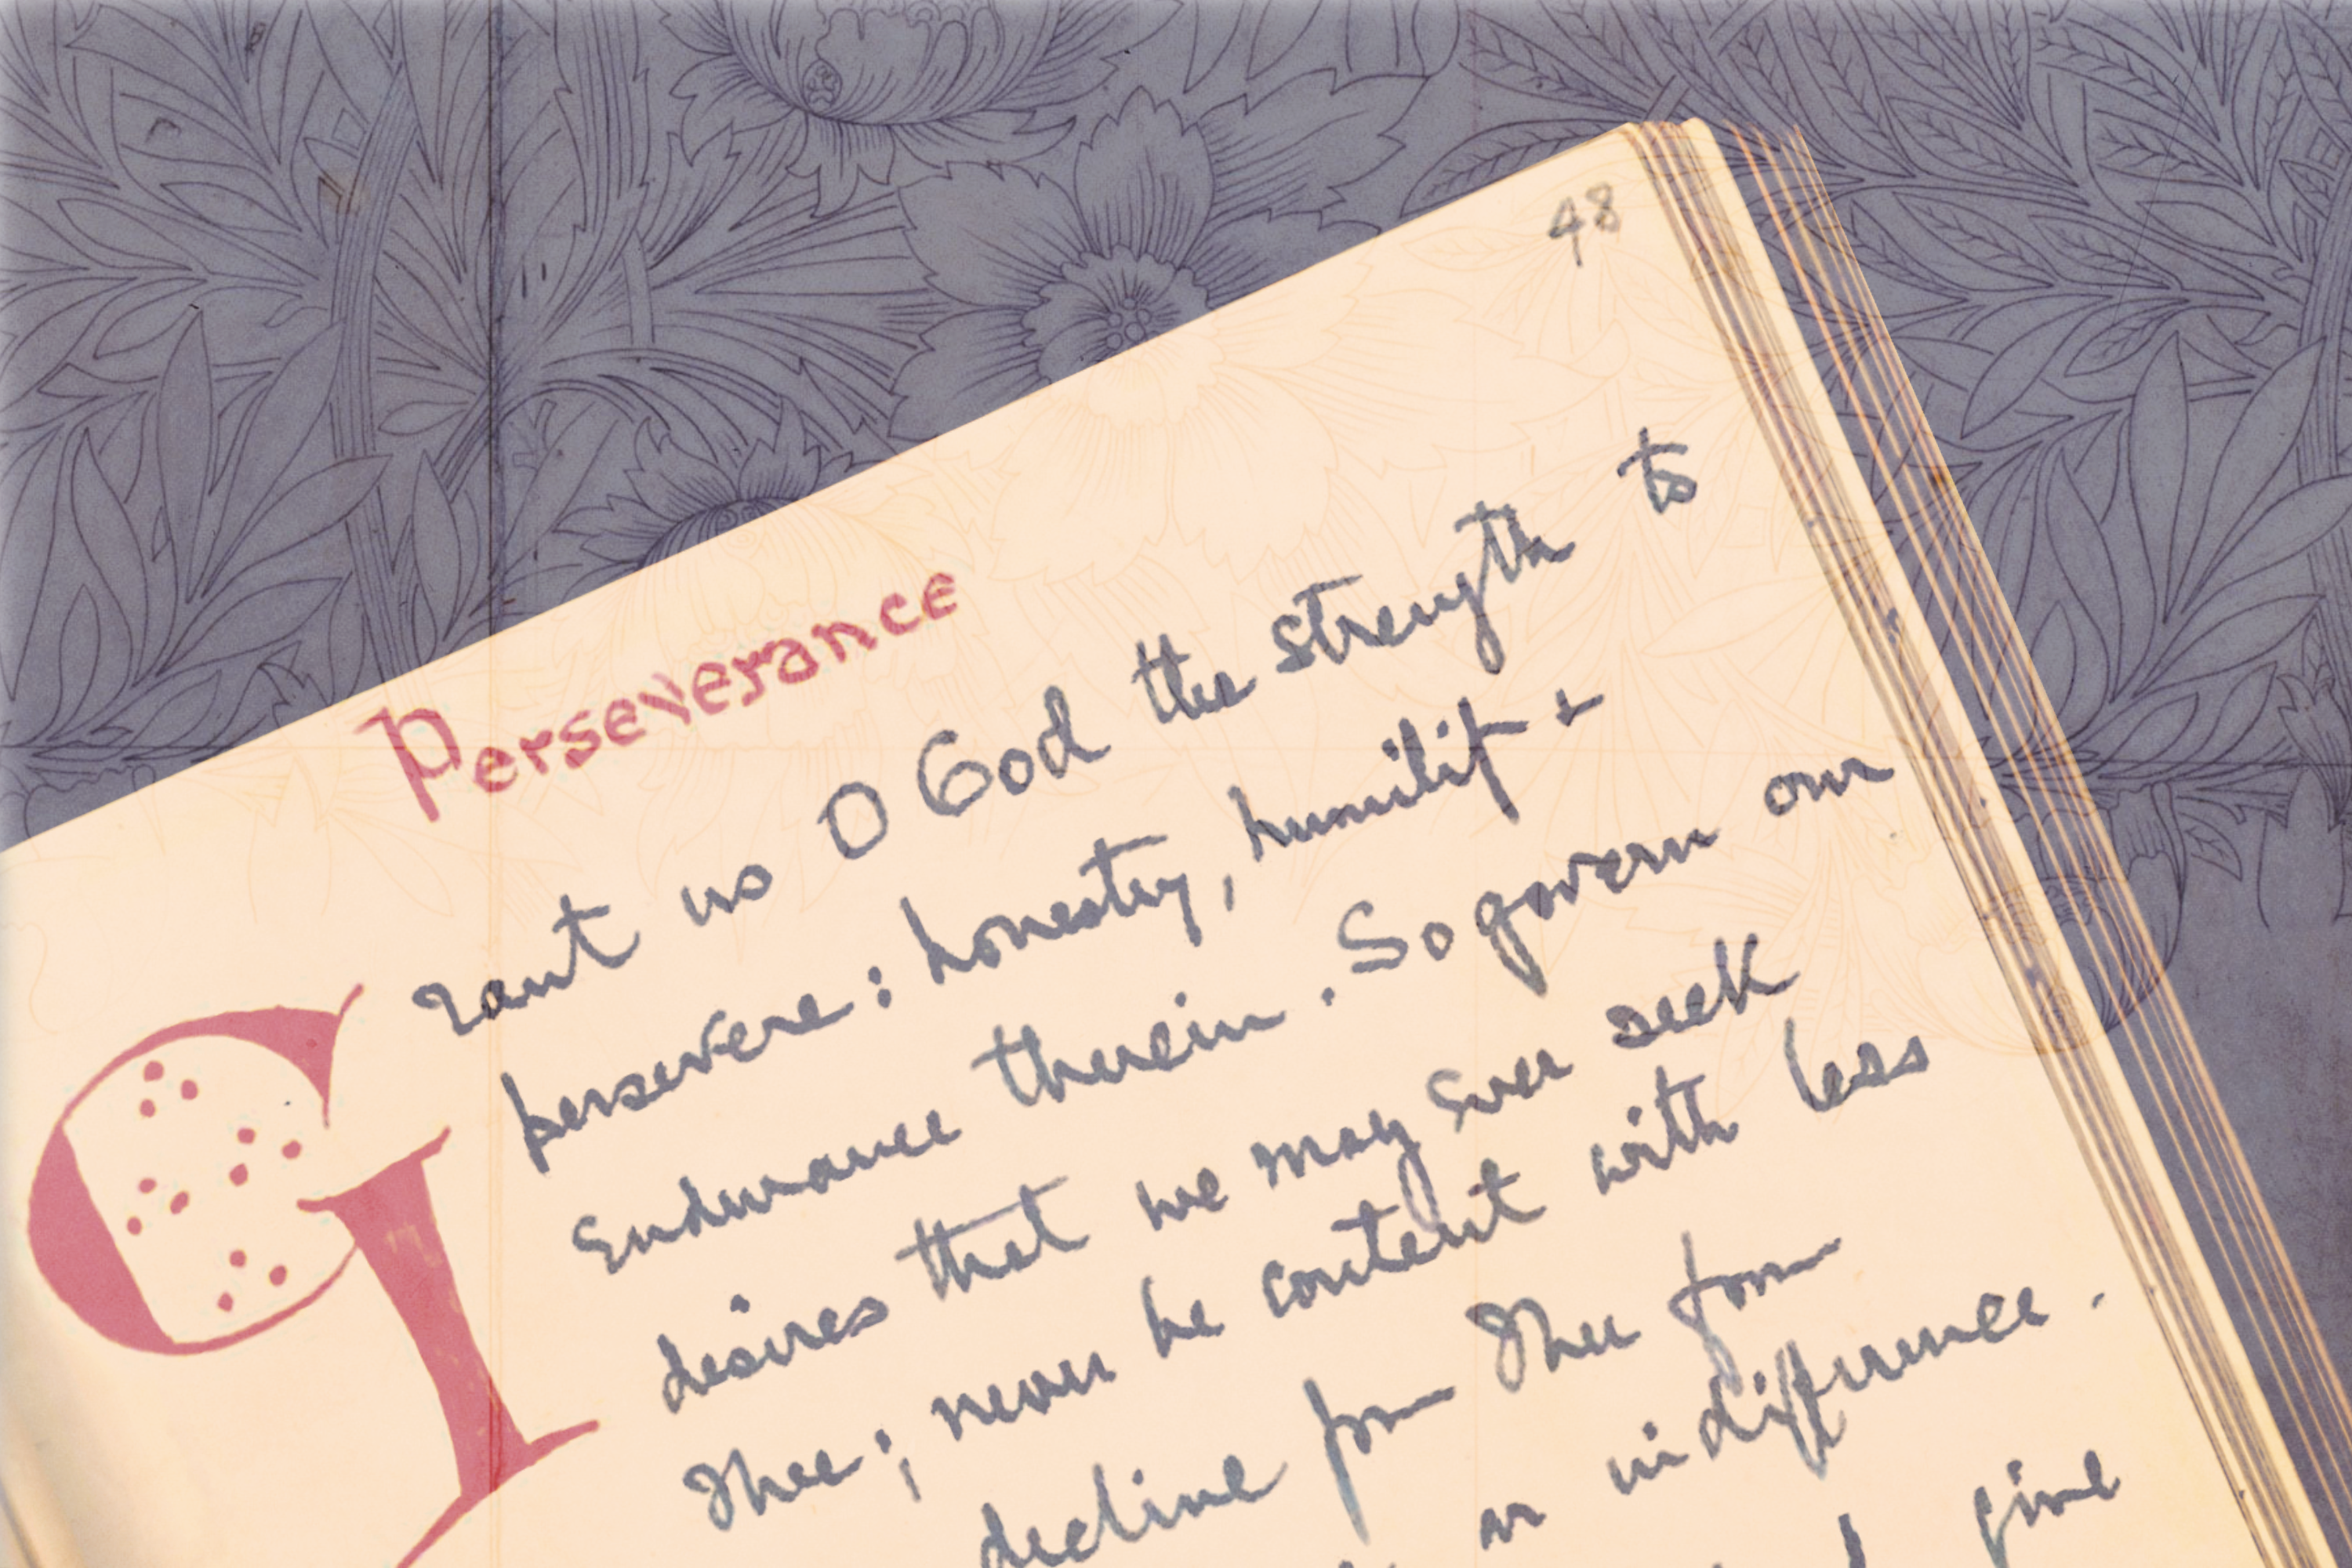 48
Perseverance
Grant us O God the strength to
persevere : honesty, humility &
Endurance therein. So govern our
desires that we may ever seek
Thee; never be content with less
decline from Thee from
or indifference.
give